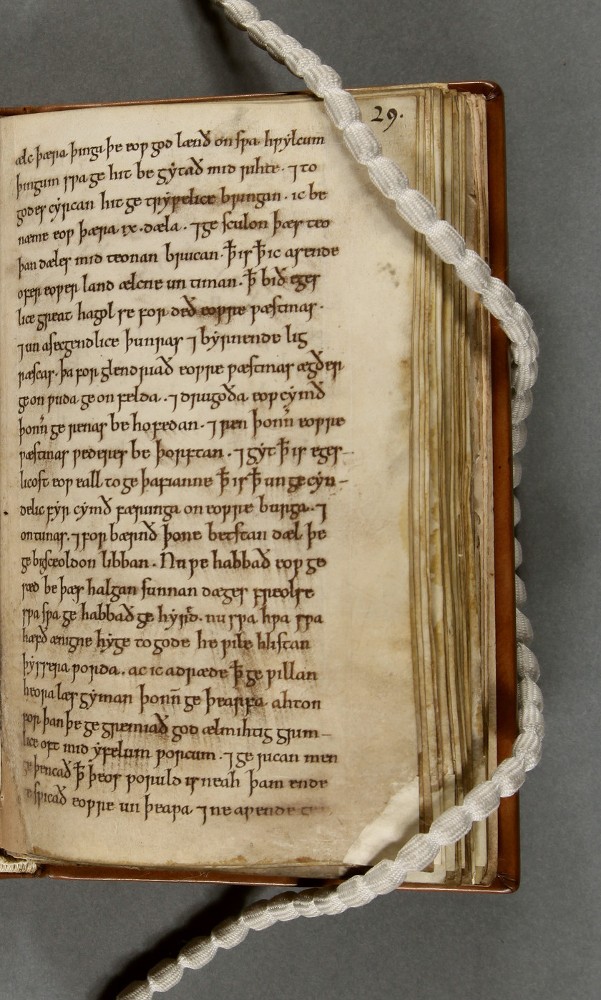 29.
ælc þæra þinga þe eop god lænð on spa hpylcum
þingum spa ge hit be gytað mid rihte · ⁊ to
godes cyrican hit ge trypelice bringan · ic be
name eop þæra ix · dæla · ⁊ ge sculon þæs teo
þan dæles mid teonan brucan · ꝥ is ꝥ ic asende
ofer eoper land ælcne un timan · ꝥ bið eges
lice great hagol se for deð eopre pæstmas ·
⁊ un asecgendlice þunras ⁊ byrnende lig
ræscas · þa for glendriað eopre pæstmas ægðer
ge on puda ge on felda · ⁊ drugoða eop cymð
þonn̄ ge renas be hofedan · ⁊ ren þonn̄ eopre
pæstmas pederes be þorftan · ⁊ gyt ꝥ is eges-
licost eop eall to ge þafianne ꝥ is ꝥ un ge cyn-
delic fyr cymð færunga on eopre burga · ⁊
on tunas · ⁊ for bærnð þone betstan dæl þe
ge bi sceoldon libban · Nu pe habbað eop ge
ræd be þæs halgan sunnan dæges freolse
spa spa ge habbað ge hyrd · nu spa hpa spa
hæfð ænigne hyge to gode he pile hlistan
þyssera porda · ac ic adræde ꝥ ge pillan
heora læs gyman þonn̄ ge þearfa ahton
for þan þe ge gremiað god ælmihtig grim-
lice oft mid yfelum porcum · ⁊ ge rican men
ge þencað ꝥ þeos poruld is neah þam ende
eopre un þeapa ⁊ ne apende